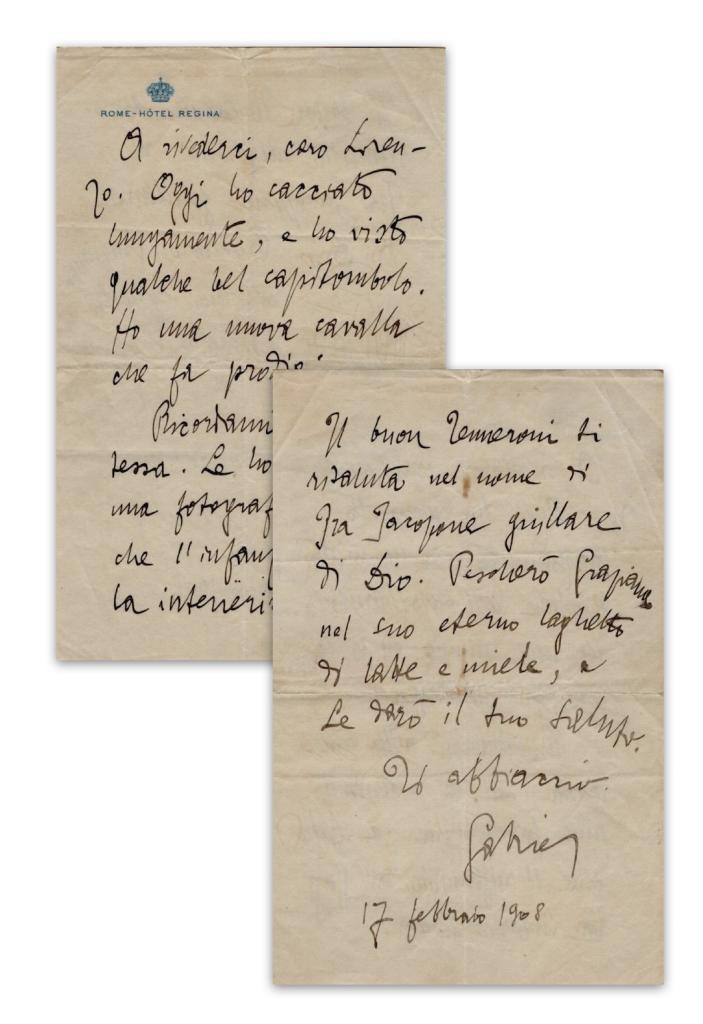 ROME-HÔTEL REGINA
A rivederci, caro Loren-
zo. Oggi ho cacciato
lungamente, e ho visto
qualche bel capitombolo.
Ho una nuova cavalla
che fa prodigi
Ricordami
tessa. Le ho
una fotograf
che l'infan
la inteneri
Il buon Tenneroni ti
risaluta nel nome di
Fra Jacopone giullare
di Dio. Pescherò
nel suo eterno laghetto
di latte e miele, e
Le darò il tuo saluto.
Ti abbraccio.
Gabriel
17 febbraio 1908